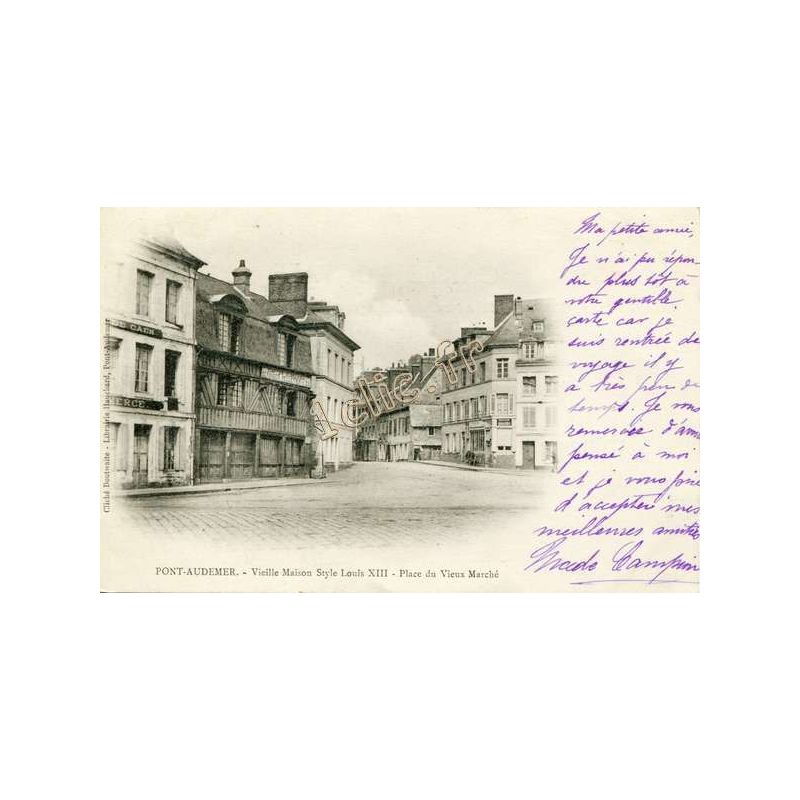 Ma petite amie,
Je n'ai pu répon
dre plus tôt à
votre gentille
carte car je
suis rentrée de
voyage il y
a très peu de
temps. Je vous
remercie d'avoir
pensé à moi
et je vous prie
d'accepter mes
meilleures amitiés
Campion
DE CAEN
ERCE
1clic.fr
Cliché Doutwaite - Librairie Hauchard, Pont-Audemer
PONT-AUDEMER. - Vieille Maison Style Louis XIII - Place du Vieux Marché